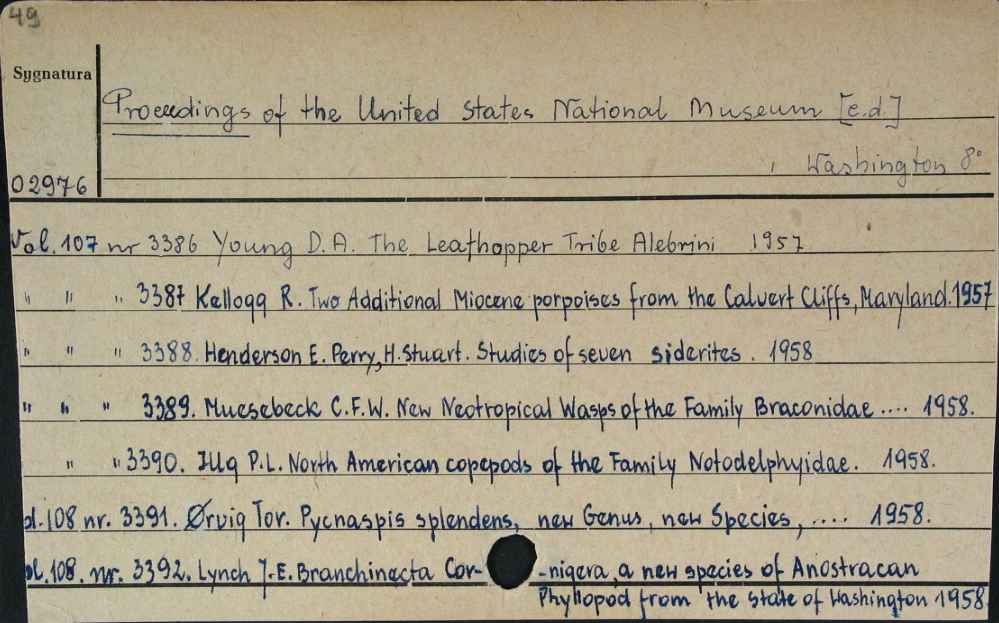 49
Sygnatura
Proceedings of the United States National Museum [e.d.]
, Washington 8°
02976
Vol. 107 nr 3386 Young D.A. The Leafhopper Tribe Alebrini 1957
" " " 3387 Kellogg R. Two Additional Miocene porpoises from the Calvert Cliffs, Maryland. 1957
" " " 3388. Henderson E. Perry, H. Stuart. Studies of seven siderites. 1958
" " " 3389. Muesebeck C.F.W. New Neotropical Wasps of the Family Braconidae .... 1958.
" " 3390. Illg P.L. North American copepods of the Family Notodelphyidae. 1958.
ol. 108 nr. 3391. Ørvig Tor. Pycnaspis splendens, new Genus, new Species, .... 1958.
ol. 108. nr. 3392. Lynch J.E. Branchinecta Cor- -nigera, a new species of Anostracan
Phyllopod from the State of Washington 1958